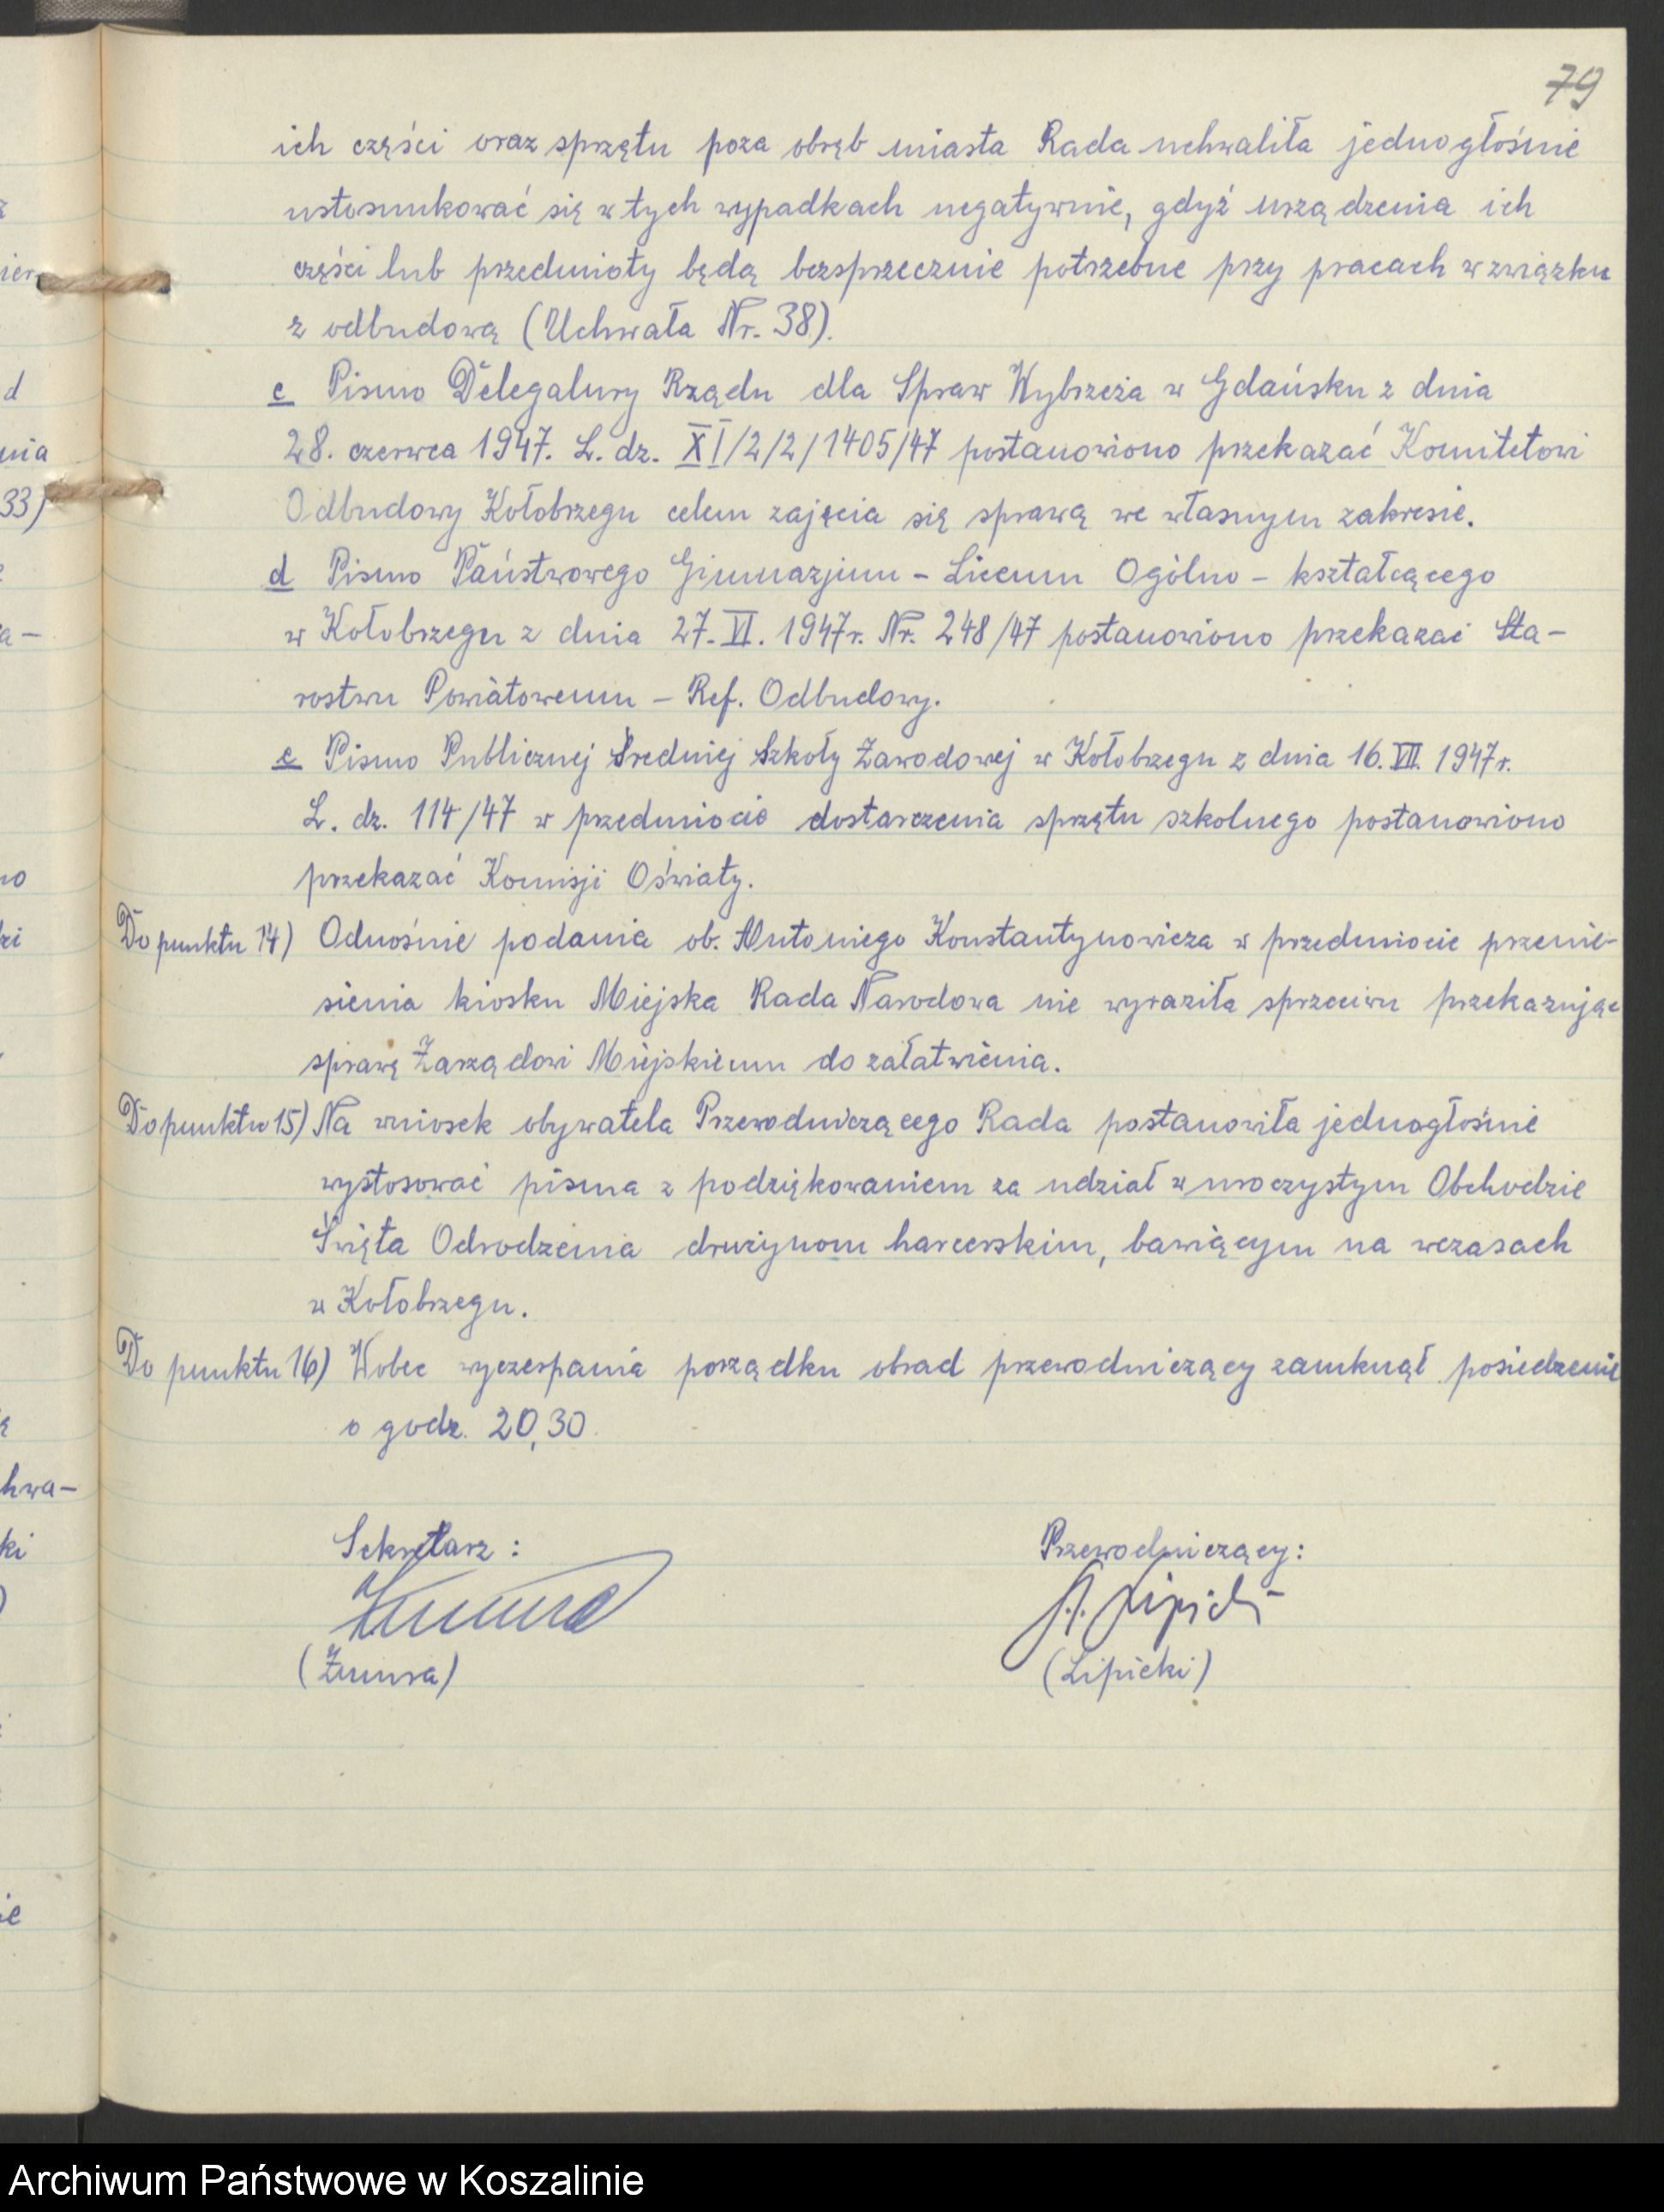 79
ich części oraz sprzętu poza obręb miasta Rada uchwaliła jednogłośnie
ustosunkować się w tych wypadkach negatywnie, gdyż urządzenia ich
części lub przedmioty będą bezsprzecznie potrzebne przy pracach w związku
z odbudową (Uchwała Nr. 38).
c Pismo Delegatury Rządu dla Spraw Wybrzeża w Gdańsku z dnia
28. czerwca 1947. L. dz. XI/2/2/1405/47 postanowiono przekazać Komitetowi
Odbudowy Kołobrzegu celem zajęcia się sprawą we własnym zakresie.
d Pismo Państwowego Gimnazjum - Liceum Ogólno - kształcącego
w Kołobrzegu z dnia 27. VI. 1947r. Nr. 248/47 postanowiono przekazać Sta-
rostwu Powiatowemu - Ref. Odbudowy.
e Pismo Publicznej Średniej Szkoły Zawodowej w Kołobrzegu z dnia 16. VII. 1947r.
L. dz. 114/47 w przedmiocie dostarczenia sprzętu szkolnego postanowiono
przekazać Komisji Oświaty.
Do punktu 14) Odnośnie podania ob. Antoniego Konstantynowicza w przedmiocie przenie-
sienia kiosku Miejska Rada Narodowa nie wyraziła sprzeciwu przekazując
sprawę Zarządowi Miejskiemu do załatwienia.
Do punktu 15) Na wniosek obywatela Przewodniczącego Rada postanowiła jednogłośnie
wystosować pisma z podziękowaniem za udział w uroczystym Obchodzie
Święta Odrodzenia drużynom harcerskim, bawiącym na wczasach
w Kołobrzegu.
Do punktu 16) Wobec wyczerpania porządku obrad przewodniczący zamknął posiedzenie
o godz. 20,30.
Sekretarz : Przewodniczący:
(Żmura) (Lipicki)
d
33)
hwa-
ki
Archiwum Państwowe w Koszalinie